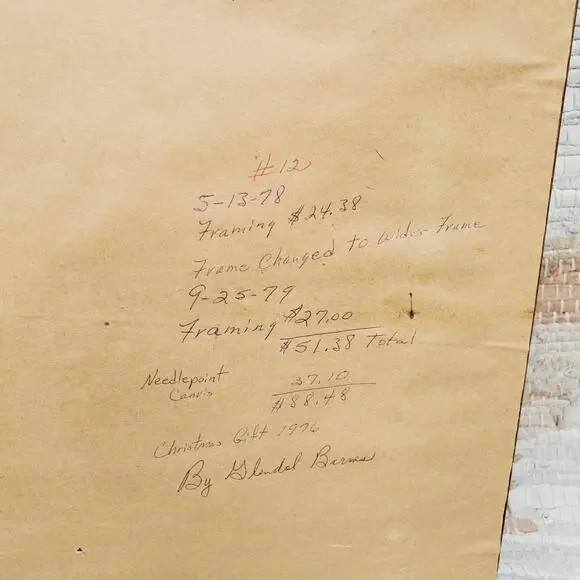 #12
5-13-78
Framing $24.38
Frame Changed to Wider Frame
9-25-79
Framing $27.00
$51.38 Total
Needlepoint 37.10
$88.48
Christmas Gift 1976
By Glendel Barnes